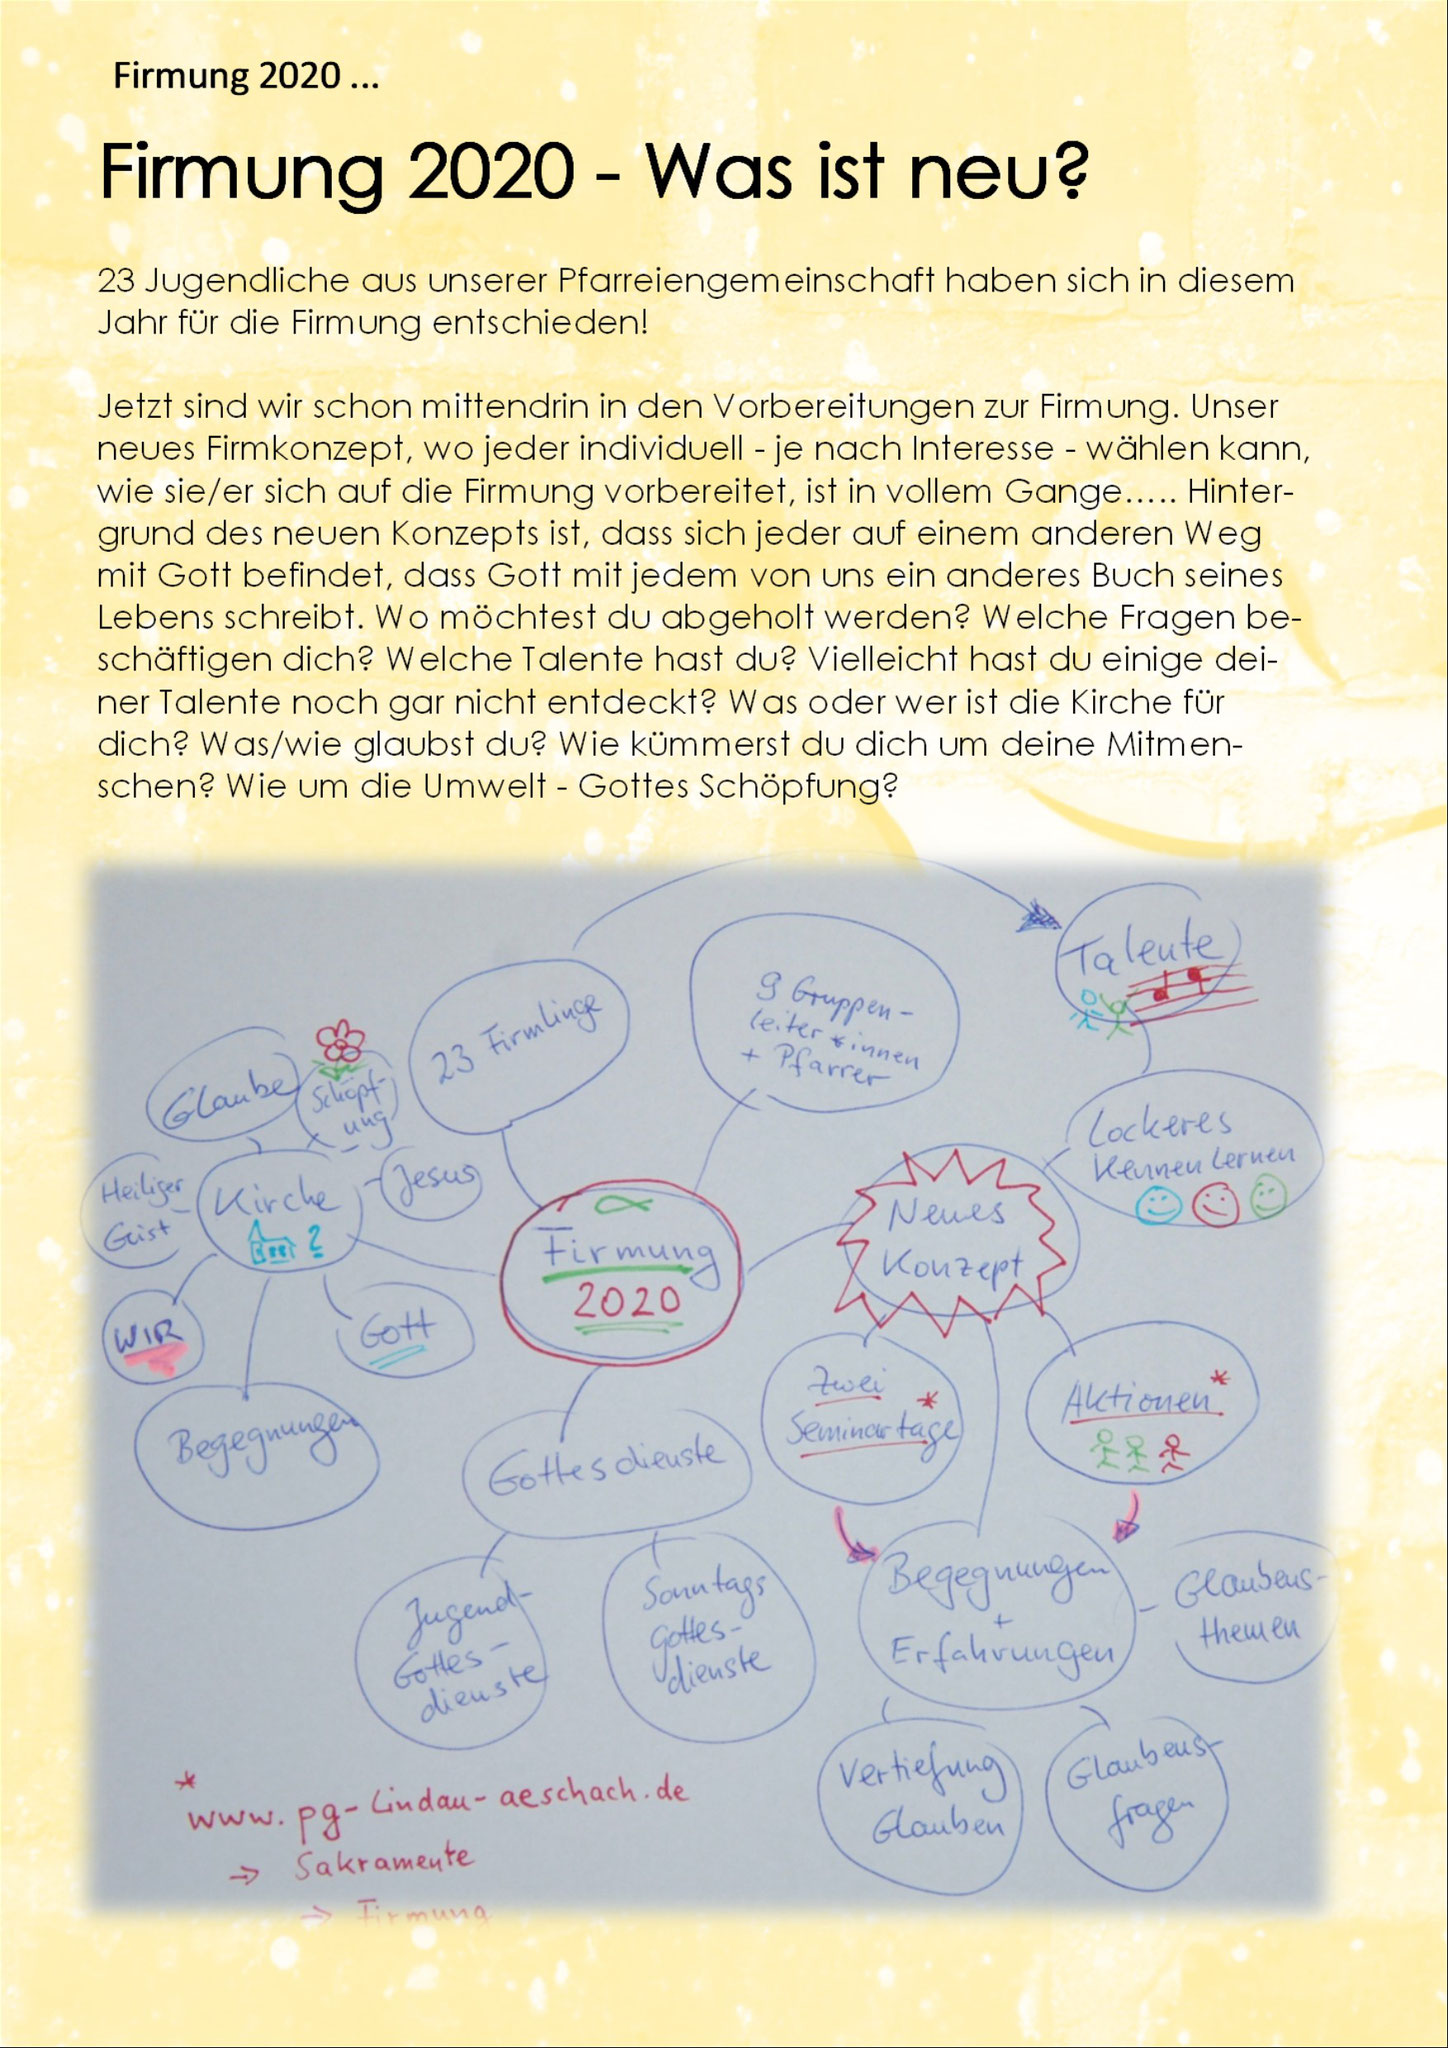 Firmung 2020 ...
Firmung 2020 - Was ist neu?
23 Jugendliche aus unserer Pfarreiengemeinschaft haben sich in diesem
Jahr für die Firmung entschieden!
Jetzt sind wir schon mittendrin in den Vorbereitungen zur Firmung. Unser
neues Firmkonzept, wo jeder individuell - je nach Interesse - wählen kann,
wie sie/er sich auf die Firmung vorbereitet, ist in vollem Gange….. Hinter-
grund des neuen Konzepts ist, dass sich jeder auf einem anderen Weg
mit Gott befindet, dass Gott mit jedem von uns ein anderes Buch seines
Lebens schreibt. Wo möchtest du abgeholt werden? Welche Fragen be-
schäftigen dich? Welche Talente hast du? Vielleicht hast du einige dei-
ner Talente noch gar nicht entdeckt? Was oder wer ist die Kirche für
dich? Was/wie glaubst du? Wie kümmerst du dich um deine Mitmen-
schen? Wie um die Umwelt - Gottes Schöpfung?
Talente
9 Gruppen-
leiter*innen
+ Pfarrer
23 Firmlinge
Glaube
Schöpf-
ung
Lockeres
Kennen lernen
Heiliger
Geist
Kirche
?
Jesus
Firmung
2020
Neues
Konzept
WIR
Gott
Zwei
Seminartage *
Aktionen *
Begegnungen
Gottesdienste
Jugend-
Gottes-
dienste
Sonntags
gottes-
dienste
Begegnungen
+
Erfahrungen
Glaubens-
themen
Vertiefung
Glauben
Glaubens-
fragen
*
www.pg-lindau-aeschach.de
→ Sakramente
→ Firmung